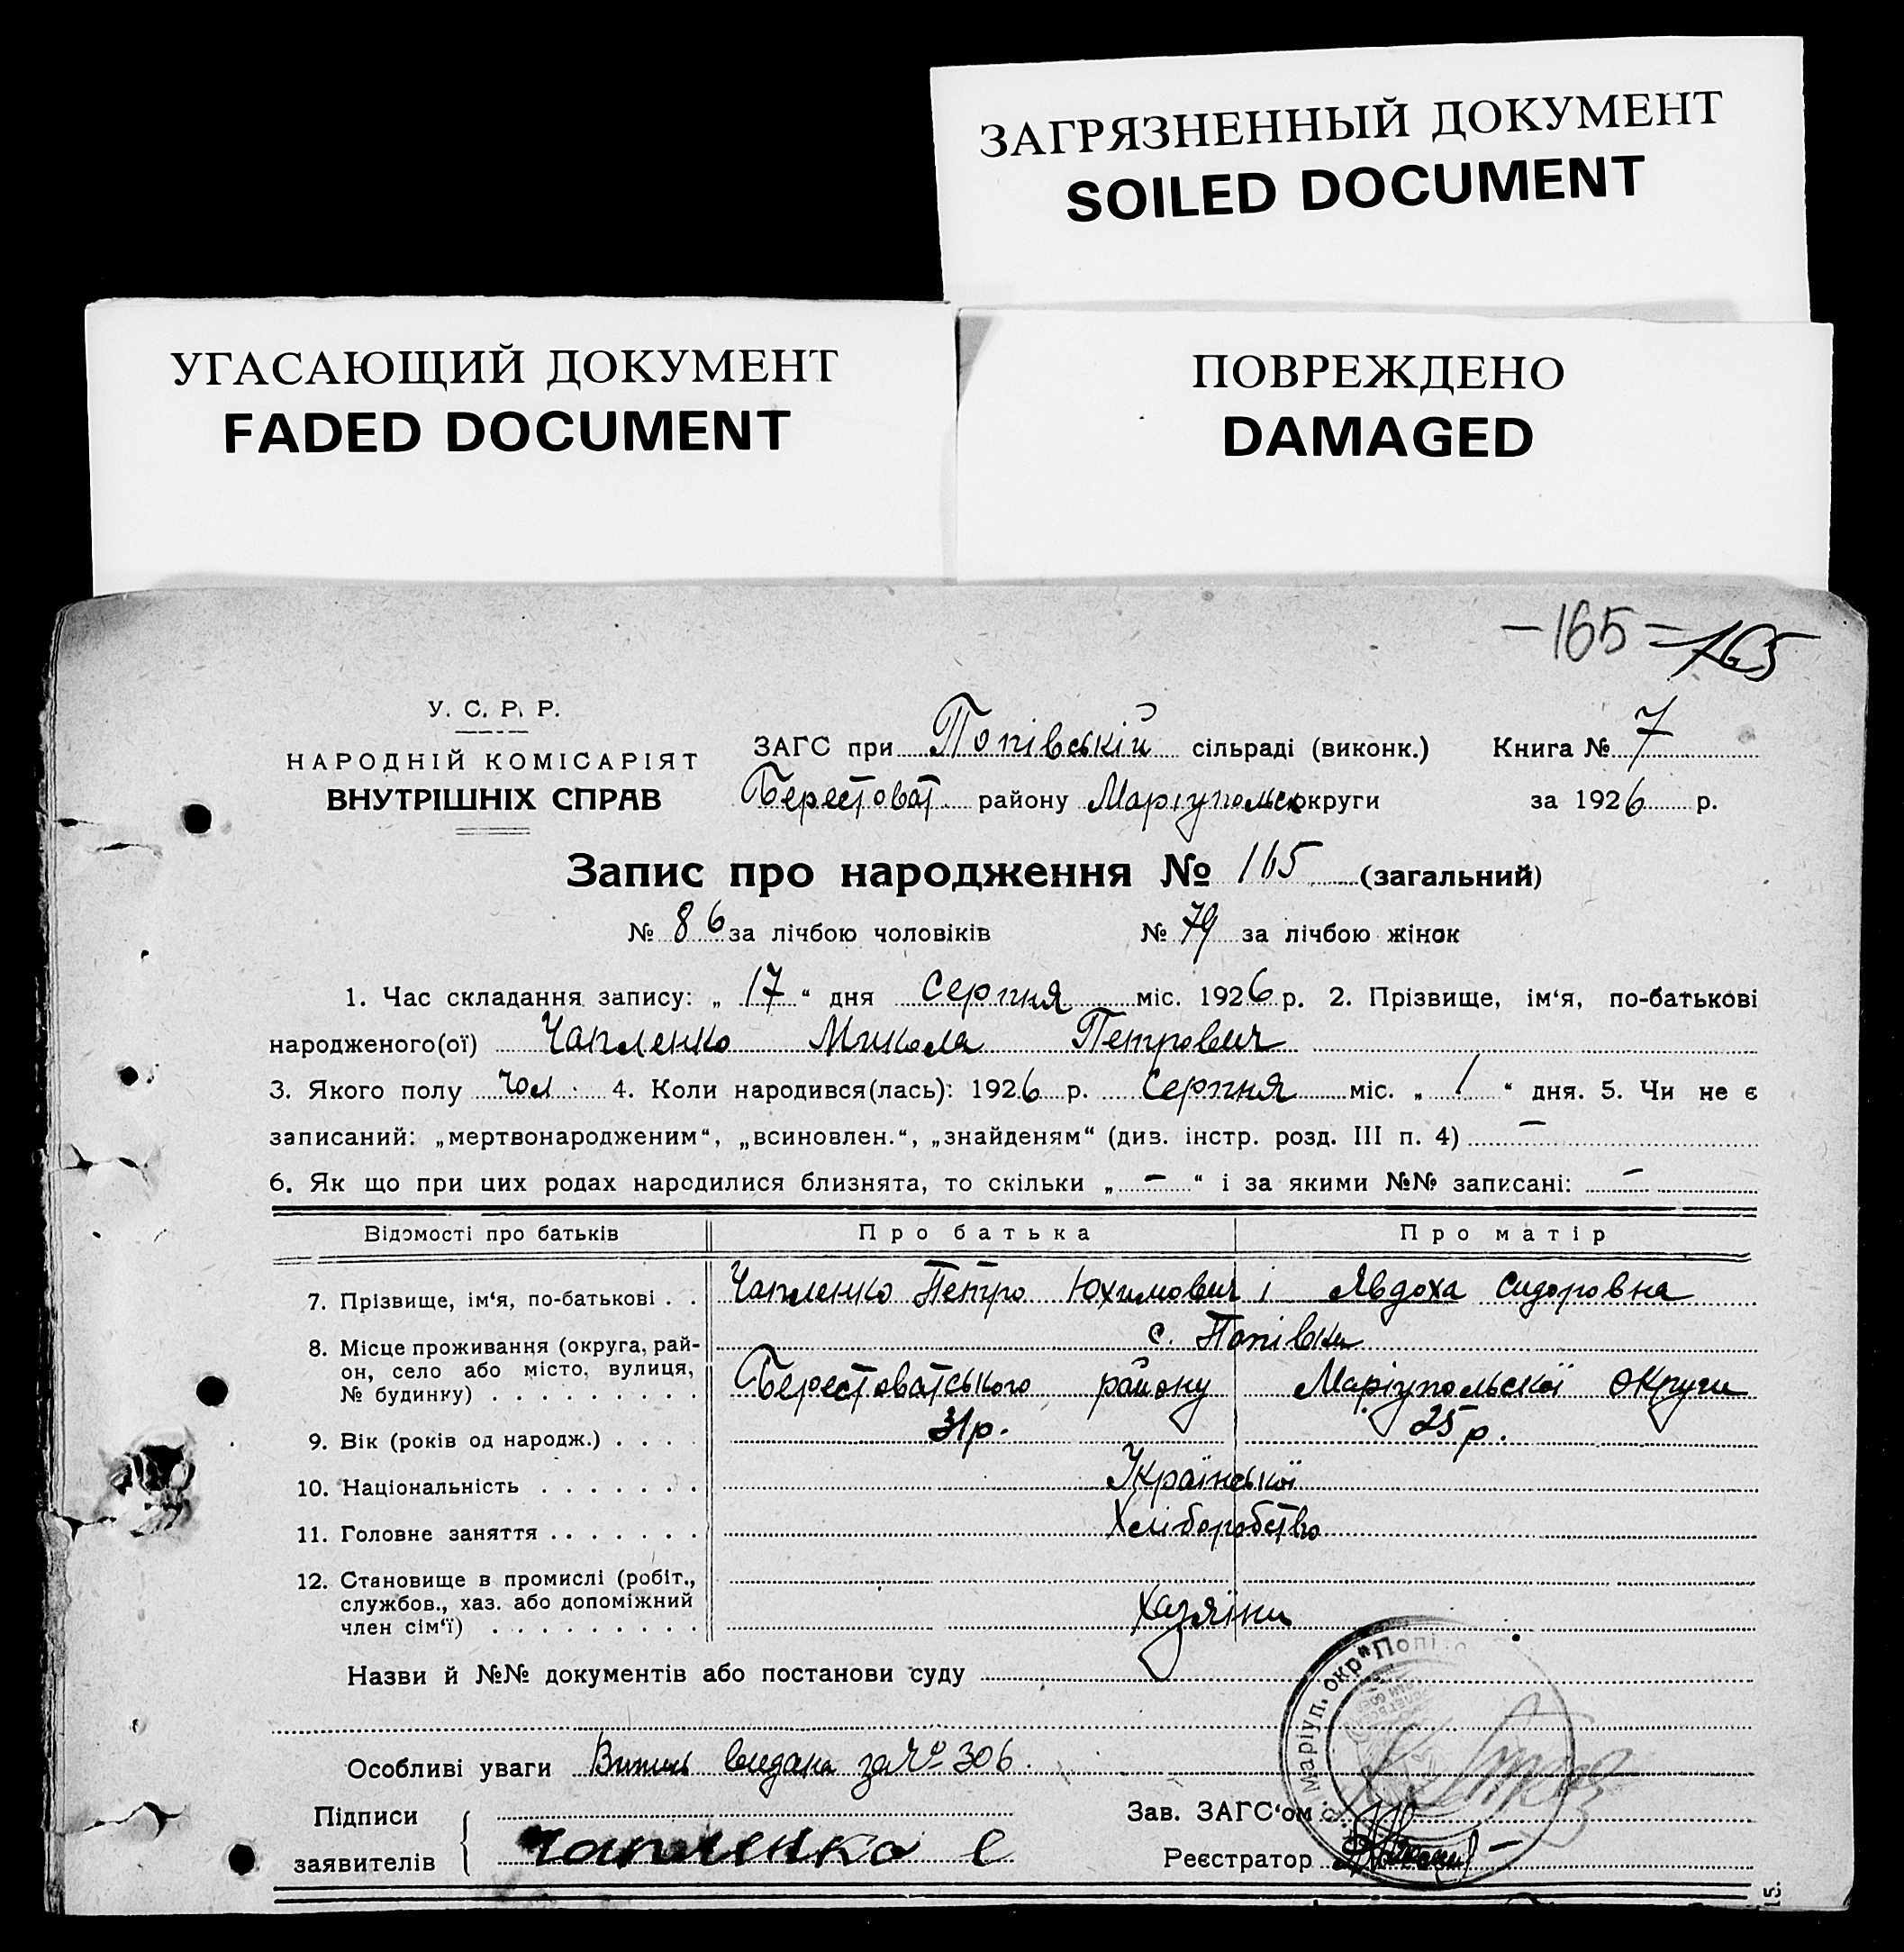 ЗАГРЯЗНЕННЫЙ ДОКУМЕНТ
SOILED DOCUMENT
УГАСАЮЩИЙ ДОКУМЕНТ
FADED DOCUMENT
ПОВРЕЖДЕНО
DAMAGED
—165= 165
У. С. Р. Р.
НАРОДНІЙ КОМІСАРІЯТ
ВНУТРІШНІХ СПРАВ
ЗАГС при Попівській сільраді (виконк.) Книга № 7
Берестоват. району Маріупольськ округи за 1926 р.
Запис про народження № 165 (загальний)
№ 86 за лічбою чоловіків № 79 за лічбою жінок
1. Час складання запису: „ 17 “ дня Серпня міс. 1926 р. 2. Прізвище, ім‘я, по-батькові
народженого(ої) Чапленко Микола Петрович
3. Якого полу чол. 4. Коли народився(лась): 1926 р. Серпня міс. „ 1 “ дня. 5. Чи не є
записаний: „мертвонародженим“, „всиновлен.“, „знайденям“ (див. інстр. розд. III п. 4) —
6. Як що при цих родах народилися близнята, то скільки „ — “ і за якими №№ записані: —
Відомості про батьків Про батька Про матір
7. Прізвище, ім‘я, по-батькові . . Чапленко Петро Юхимович і Явдоха Сидоровна
8. Місце проживання (округа, рай-
он, село або місто, вулиця,
№ будинку) . . . . . . . . .
с. Попівки
Берестоватського району Маріупольскої округи
9. Вік (років од народж.) . . . . 31р. 25р.
10. Національність . . . . . . . Української
11. Головне заняття . . . . . . . Хліборобство
12. Становище в промислі (робіт.,
службов., хаз. або допоміжний
член сім‘ї) . . . . . . . . . Хазяїни
Назви й №№ документів або постанови суду
Маріуп. окр. Попі
Особливі уваги Випись видана за № 306.
Підписи
заявителів
Чапленко Є
Зав. ЗАГС‘ом
Реєстратор
15.